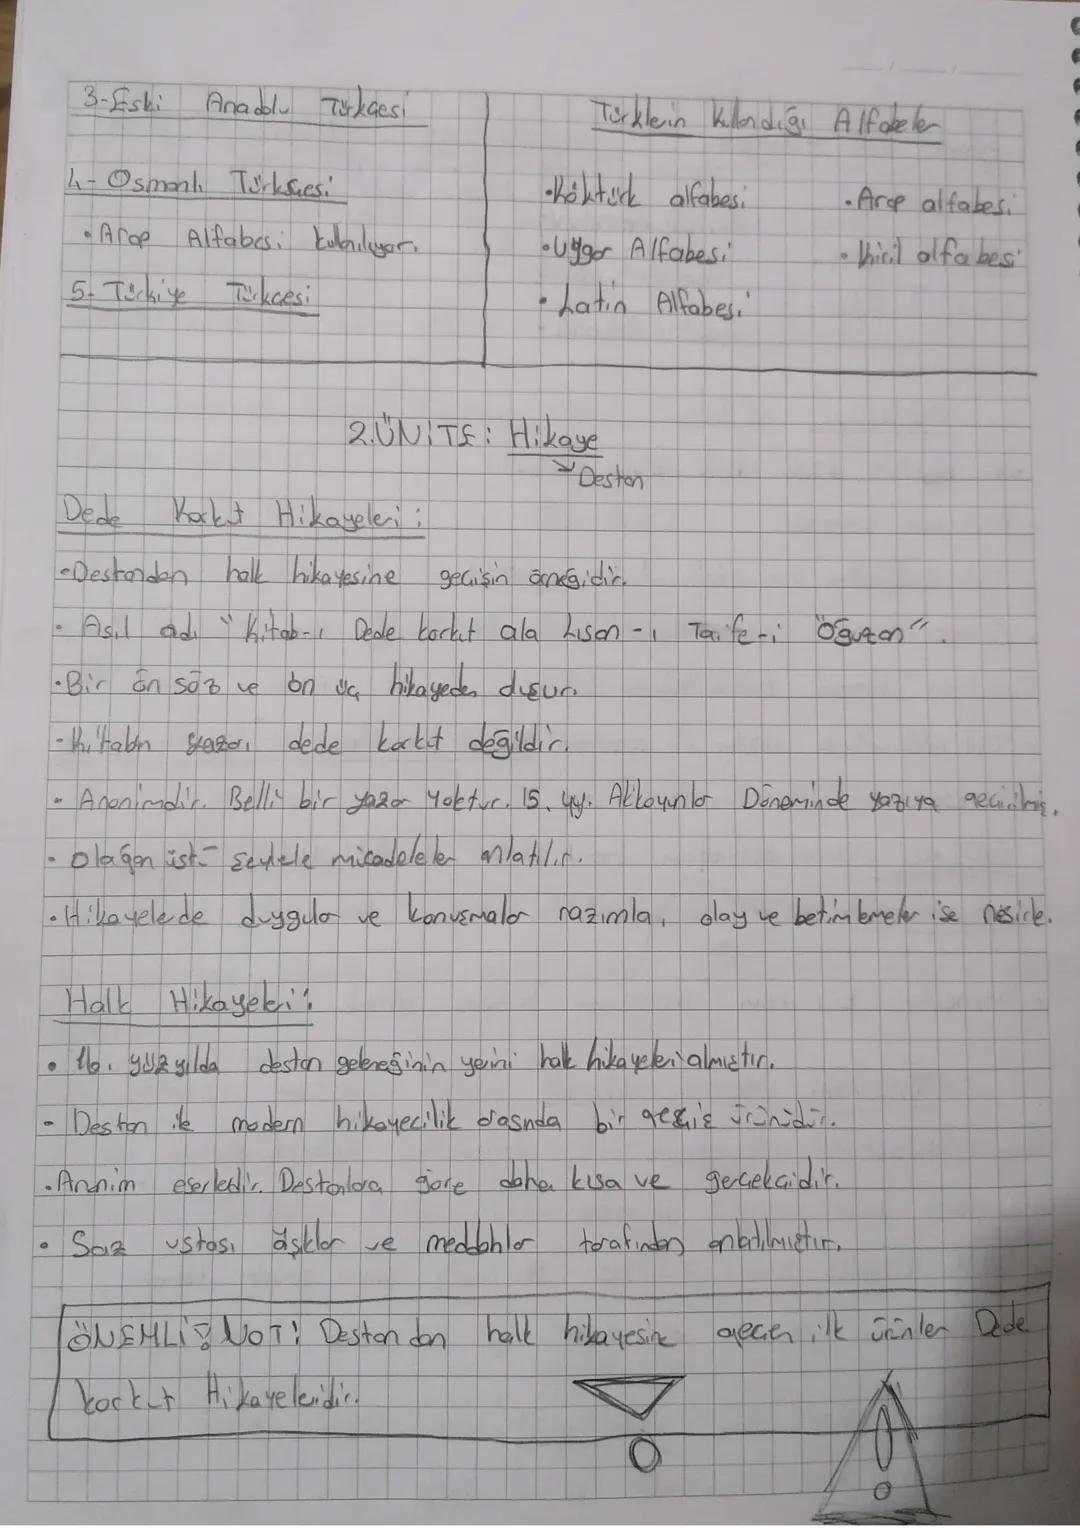 3-Eski Anadolu Türkçesi
4- Osmanlı Türkçesi
• Arap Alfabesi kullanılıyor.
5- Türkiye Türkçesi
Türklerin Kullandığı Alfabeler
• Köktürk alfabesi
• Arap alfabesi
• Uygur Alfabesi
• Kiril alfabesi
• Latin Alfabesi
2.ÜNİTE: Hikaye
Destan
Dede Korkut Hikayeleri:
• Destandan halk hikayesine geçişin örneğidir.
• Asıl adı "Kitab-ı Dede korkut ala Lisan-ı Taife-i Oğuzan".
• Bir ön söz ve on üç hikayeden oluşur.
- Kitabın yazarı dede korkut değildir.
• Anonimdir. Belli bir yazar yoktur. 15. yy. Akkoyunlar Döneminde yazıya geçirilmiş.
• Olağan üstü şeylerle mücadeleler anlatılır.
• Hikayelerde duygular ve konuşmalar nazımla, olay ve betimlemeler ise nesirle.
Halk Hikayeleri:
• 16. yüzyılda destan geleneğinin yerini halk hikayeleri almıştır.
- Destan ile modern hikayecilik arasında bir geçiş ürünüdür.
• Anonim eserlerdir. Destanlara göre daha kısa ve gerçekçidir.
• Saz ustası âşıklar ve meddahlar tarafından anlatılmıştır.
ÖNEMLİ NOT! Destandan halk hikayesine geçen ilk ürünler Dede
korkut Hikayeleridir.